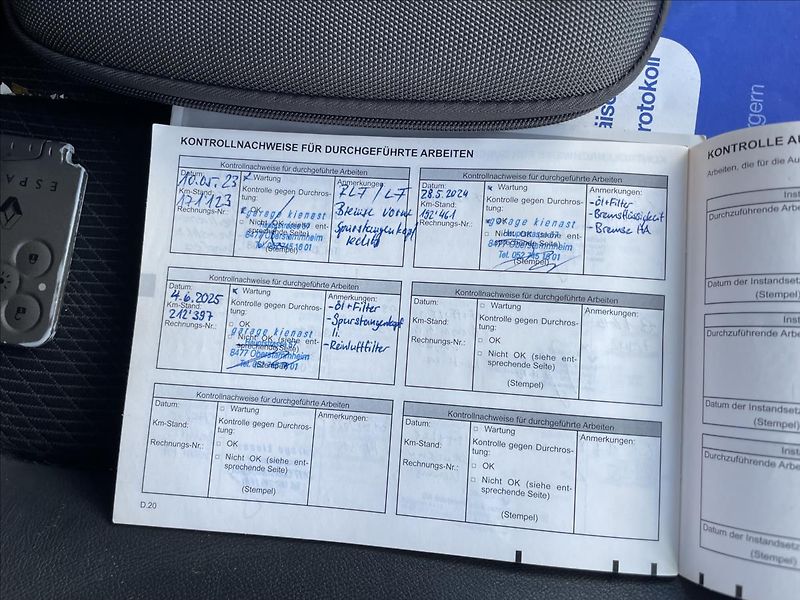 äisch
rotokoll
rgern
ESPA
KONTROLLNACHWEISE FÜR DURCHGEFÜHRTE ARBEITEN
Kontrollnachweise für durchgeführte Arbeiten
Datum:
10.05.23
Km-Stand:
171'123
Rechnungs-Nr.:
x Wartung
Kontrolle gegen Durchros-
tung:
OK
Nicht OK (siehe ent-
sprechende Seite)
garage kienast
8477 Oberstammheim
Tel. 052 745 18 01
(Stempel)
Anmerkungen:
Bremse vorne
Spurstangenkopf
rechts
Kontrollnachweise für durchgeführte Arbeiten
Datum:
28.5.2024
Km-Stand:
192'461
Rechnungs-Nr.:
x Wartung
Kontrolle gegen Durchros-
tung:
OK
Nicht OK (siehe ent-
sprechende Seite)
garage kienast
8477 Oberstammheim
Tel. 052 745 18 01
(Stempel)
Anmerkungen:
- Öl+Filter
- Bremsflüssigkeit
- Bremse HA
Kontrollnachweise für durchgeführte Arbeiten
Datum:
4.6.2025
Km-Stand:
212'397
Rechnungs-Nr.:
x Wartung
Kontrolle gegen Durchros-
tung:
OK
Nicht OK (siehe ent-
sprechende Seite)
garage kienast
8477 Oberstammheim
Tel. 052 745 18 01
(Stempel)
Anmerkungen:
- Öl+Filter
- Spurstangenkopf
li.
- Reinluftfilter
Kontrollnachweise für durchgeführte Arbeiten
Datum:
Km-Stand:
Rechnungs-Nr.:
Wartung
Kontrolle gegen Durchros-
tung:
OK
Nicht OK (siehe ent-
sprechende Seite)
(Stempel)
Anmerkungen:
Kontrollnachweise für durchgeführte Arbeiten
Datum:
Km-Stand:
Rechnungs-Nr.:
Wartung
Kontrolle gegen Durchros-
tung:
OK
Nicht OK (siehe ent-
sprechende Seite)
(Stempel)
Anmerkungen:
Kontrollnachweise für durchgeführte Arbeiten
Datum:
Km-Stand:
Rechnungs-Nr.:
Wartung
Kontrolle gegen Durchros-
tung:
OK
Nicht OK (siehe ent-
sprechende Seite)
(Stempel)
Anmerkungen:
D.20
KONTROLLE AU
Arbeiten, die für die Au
Inst
Durchzuführende Arbei
Datum der Instandsetz
(Stempel)
Inst
Durchzuführende Arbei
Datum der Instandsetz
(Stempel)
Inst
Durchzuführende Arbei
Datum der Instandsetz
(Stempel)